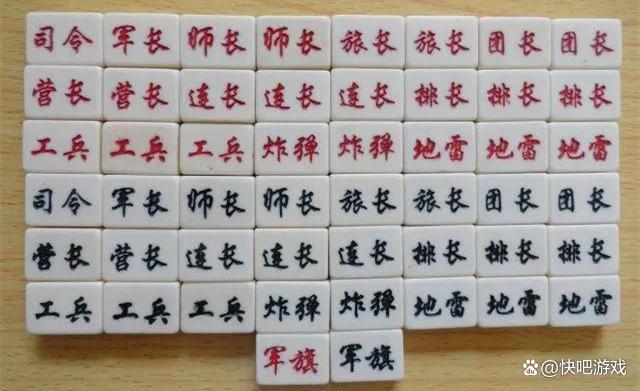 司令 军长 师长 师长 旅长 旅长 团长 团长
营长 营长 连长 连长 连长 排长 排长 排长
工兵 工兵 工兵 炸弹 炸弹 地雷 地雷 地雷
司令 军长 师长 师长 旅长 旅长 团长 团长
营长 营长 连长 连长 连长 排长 排长 排长
工兵 工兵 工兵 炸弹 炸弹 地雷 地雷 地雷
军旗 军旗
快吧游戏